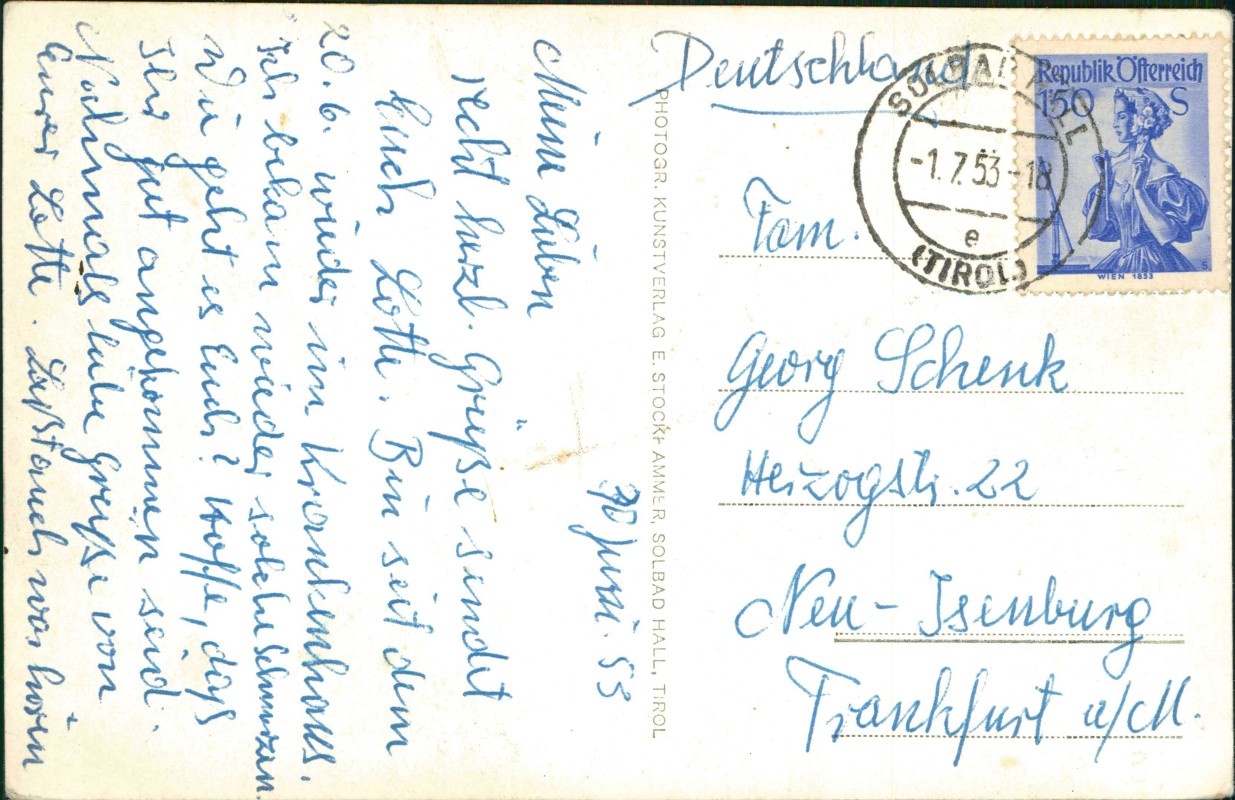 30 Juni. 53
Meine Lieben
recht herzl. Grüße sendet
Euch Lotte. Bin seit dem
20. 6. wieder im Krankenhaus.
Ich bekam wieder solche Schmerzen.
Wie geht es Euch? Hoffe, daß
Ihr gut angekommen seid.
Nochmals liebe Grüße von
Eurer Lotte. Laßt auch was hören
PHOTOGR. KUNSTVERLAG E. STOCKHAMMER, SOLBAD HALL, TIROL
Deutschland
Republik Österreich
150 S
WIEN 1853
SOLBAD HALL
-1. 7. 53-18
e
(TIROL)
Fam.
Georg Schenk
Herzogstr. 22
Neu-Isenburg
Frankfurt a/M.